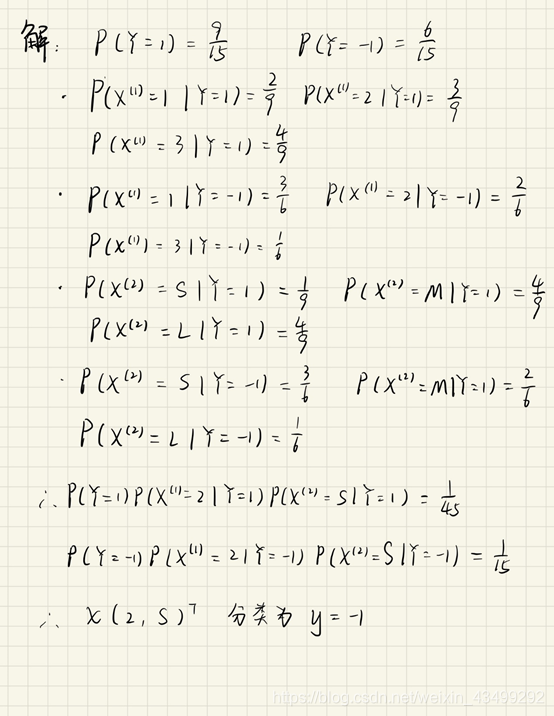 解: P(Y=1)=9/15 P(Y=-1)=6/15
· P(X⁽¹⁾=1|Y=1)=2/9 P(X⁽¹⁾=2|Y=1)=3/9
P(X⁽¹⁾=3|Y=1)=4/9
· P(X⁽¹⁾=1|Y=-1)=3/6 P(X⁽¹⁾=2|Y=-1)=2/6
P(X⁽¹⁾=3|Y=-1)=1/6
· P(X⁽²⁾=S|Y=1)=1/9 P(X⁽²⁾=M|Y=1)=4/9
P(X⁽²⁾=L|Y=1)=4/9
· P(X⁽²⁾=S|Y=-1)=3/6 P(X⁽²⁾=M|Y=1)=2/6
P(X⁽²⁾=L|Y=-1)=1/6
∴ P(Y=1)P(X⁽¹⁾=2|Y=1)P(X⁽²⁾=S|Y=1)=1/45
P(Y=-1)P(X⁽¹⁾=2|Y=-1)P(X⁽²⁾=S|Y=-1)=1/15
∴ x(2,S)ᵀ 分类为 y=-1
https://blog.csdn.net/weixin_43499292